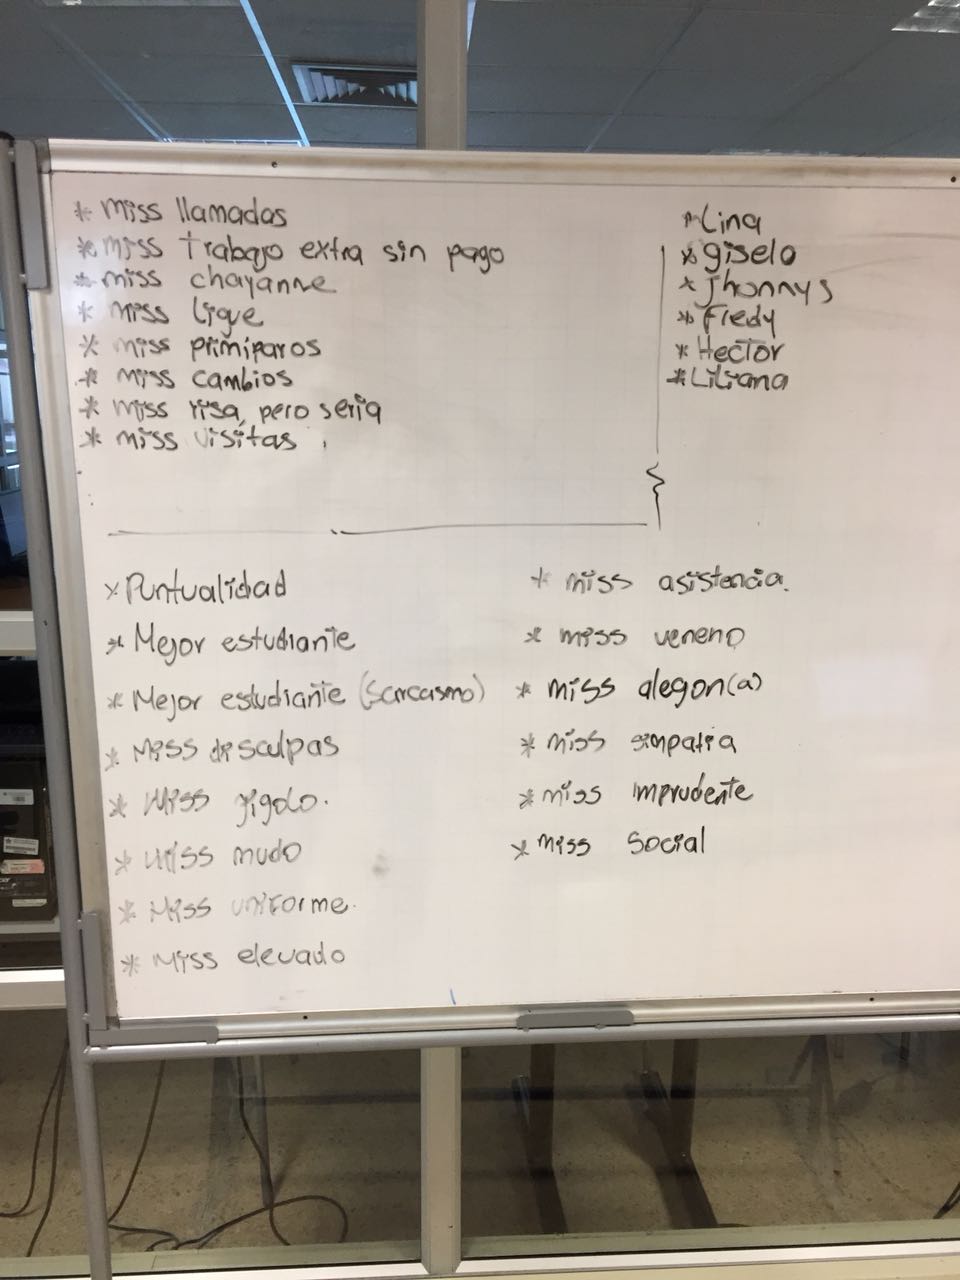 * miss llamadas
* miss trabajo extra sin pago
* miss chayanne
* miss ligue
* miss primiparos
* miss cambios
* miss risa, pero seria
* miss visitas
* Lina
* giselo
* Jhonnys
* Fredy
* Hector
* Liliana
* Puntualidad
* Mejor estudiante
* Mejor estudiante (Sarcasmo)
* Miss disculpas
* Miss gigolo.
* Miss mudo
* Miss uniforme.
* Miss elevado
* miss asistencia.
* miss veneno
* miss alegon(a)
* miss simpatia
* miss imprudente
* miss social